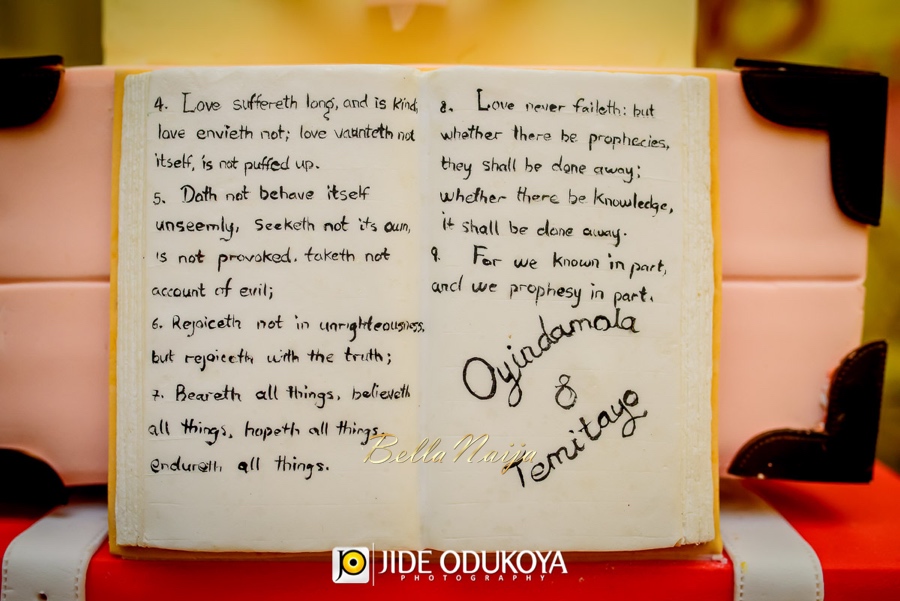 4. Love suffereth long, and is kind,
love envieth not; love vaunteth not
itself, is not puffed up.
5. Doth not behave itself
unseemly, Seeketh not its own,
is not provoked. taketh not
account of evil;
6. Rejoiceth not in unrighteousness,
but rejoiceth with the truth;
7. Beareth all things, believeth
all things, hopeth all things,
endureth all things.
8. Love never faileth: but
whether there be prophecies,
they shall be done away;
whether there be Knowledge,
it shall be done away.
9. For we known in part,
and we prophesy in part.
Oyindamola
&
Temitayo
BellaNaija
JO JIDE ODUKOYA
PHOTOGRAPHY